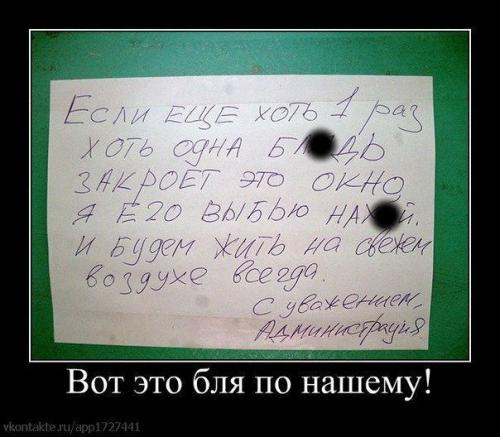 Если ещё хоть 1 раз
хоть одна Бл●дь
закроет это окно
я его выбью нах●й.
и будем жить на свежем
воздухе всегда.
С уважением,
Администрация
Вот это бля по нашему!
vkontakte.ru/app1727441